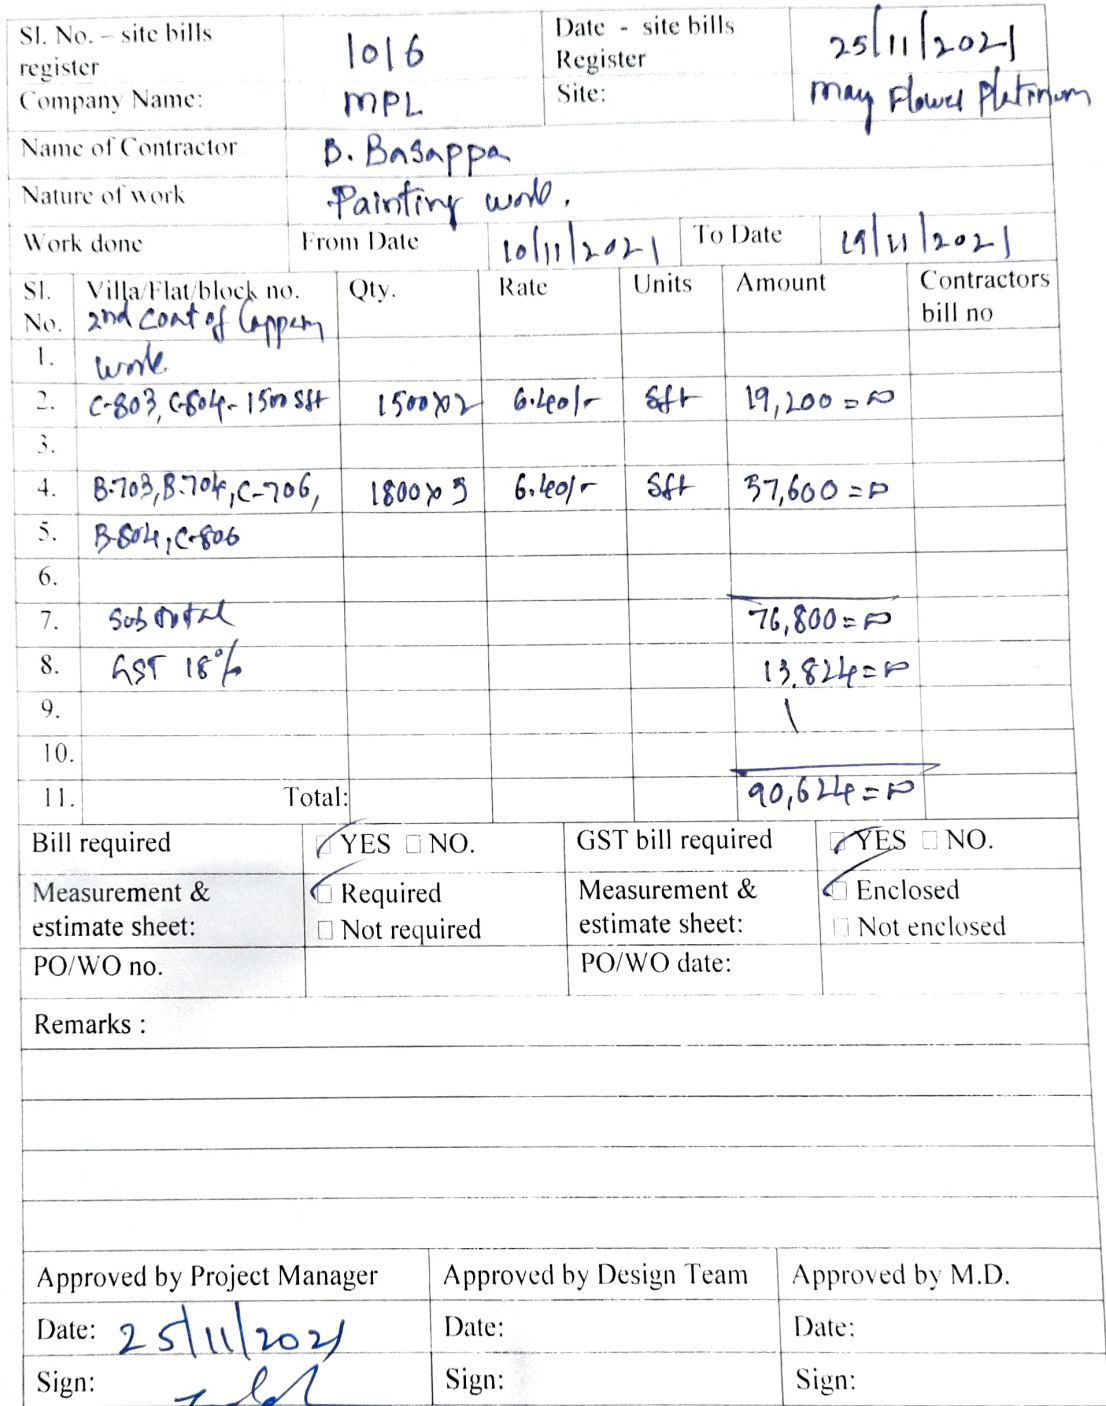 Sl. No. – site bills register 1016 Date - site bills Register 25/11/2021
Company Name: MPL Site: May Flower Platinum
Name of Contractor B. Basappa
Nature of work Painting work.
Work done From Date 10/11/2021 To Date 19/11/2021
Sl. No. Villa/Flat/block no. Qty. Rate Units Amount Contractors bill no
2nd coat of Lappam
1. work
2. C-803, C-804- 1500 Sft 1500x2 6.40/- Sft 19,200=00
3.
4. B-703, B-704, C-706, 1800x5 6.40/- Sft 57,600=00
5. B-804, C-806
6.
7. Sub total 76,800=00
8. GST 18% 13,824=00
9.
10.
11. Total: 90,624=00
Bill required YES NO. GST bill required YES NO.
Measurement & estimate sheet: Required Not required Measurement & estimate sheet: Enclosed Not enclosed
PO/WO no. PO/WO date:
Remarks :
Approved by Project Manager Approved by Design Team Approved by M.D.
Date: 25/11/2021 Date: Date:
Sign: Sign: Sign: